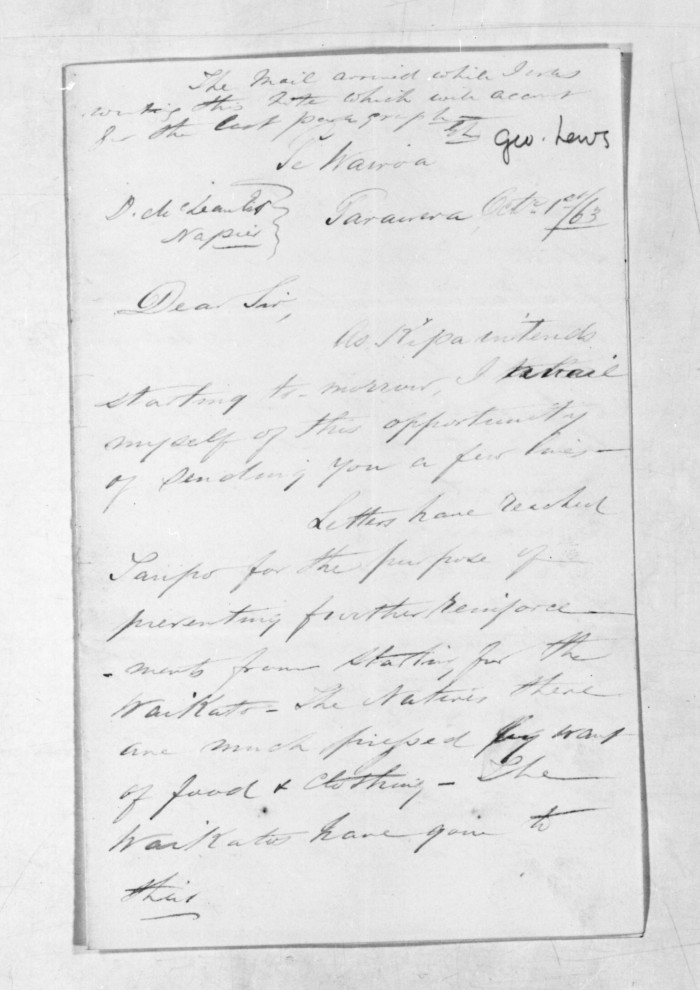 The Mail arrived while I was
writing this note which will account
for the last paragraph
Geo. Laws
Te Wairoa
D. McLean Esq
Napier
Tarawera, Octr. 1st/63
Dear Sir,
As Kipa intends
starting to-morrow, I avail
myself of this opportunity
of sending you a few lines—
Letters have reached
Taupo for the purpose of
preventing further reinforce
-ments from starting for the
Waikato - The Natives there
are much pressed by want
of food & clothing - The
Waikatos have gone to
their